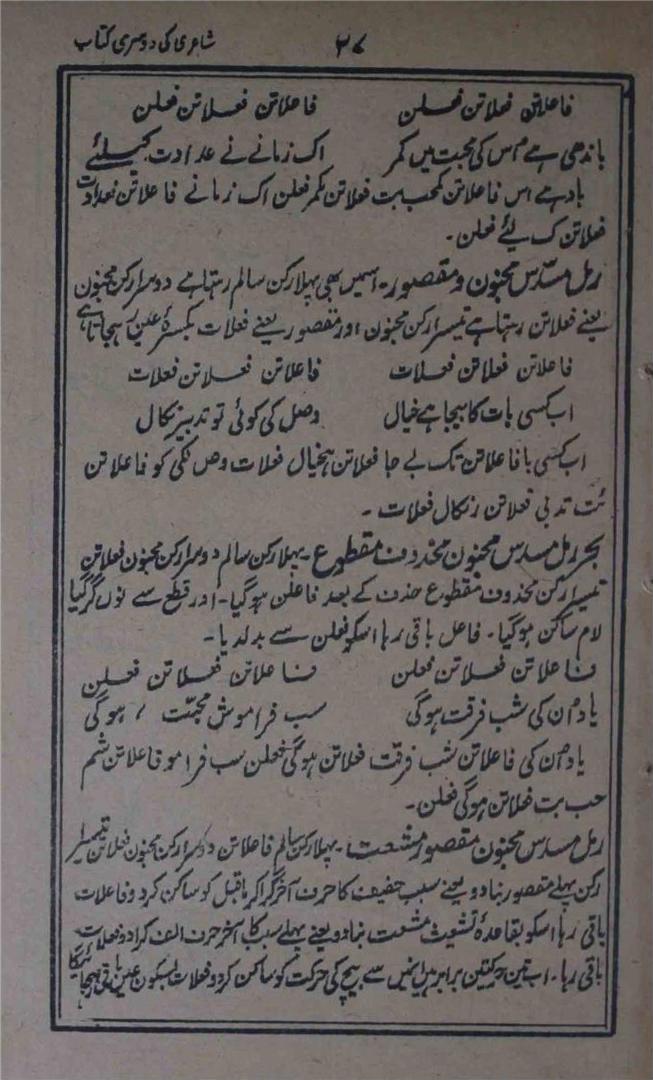 شاعری کی دوسری کتاب ۲۷
فاعلاتن فعلاتن فعلن فاعلاتن فعلاتن فعلن
باندھی ہے اس کی محبت میں کمر اک زمانے نے عدادت کیلئے
بادہے اس فاعلاتن کمحب بت فعلاتن کمر فعلن اک زمانے فاعلاتن نعدادت
فعلاتن ک لئے فعلن۔
رمل مسدس مخبون و مقصور۔ اسمیں بھی پہلا رکن سالم رہتا ہے دوسرا رکن مخبون
یعنے فعلاتن رہتا ہے تیسرا رکن مخبون اور مقصور یعنے فعلات بکسرۂ عین رہجاتا ہے
فاعلاتن فعلاتن فعلات فاعلاتن فعلاتن فعلات
اب کسی بات کا بیجا ہے خیال وصل کی کوئی تو تدبیر نکال
اب کسی با فاعلاتن تک بے جا فعلاتن ہخیال فعلات وصں لکی کو فاعلاتن
ئت تدبی فعلاتن رنکال فعلات ۔
بحر رمل مسدس مخبون محذوف مقطوع۔ پہلا رکن سالم دوسرا رکن مخبون فعلاتن
تیسرا رکن محذوف مقطوع حذف کے بعد فاعلن ہوگیا۔ اور قطع سے نون گرگیا
لام ساکن ہوگیا۔ فاعل باقی رہا اسکو فعلن سے بدلدیا۔
فاعلاتن فعلاتن فعلن فاعلاتن فعلاتن فعلن
یاد ان کی شب فرقت ہوگی سب فراموش محبت ہوگی
یاد ان کی فاعلاتن شب فرقت فعلاتن ہوگی فعلن سب فرامو فاعلاتن شم
حب بت فعلاتن ہوگی فعلن۔
رمل مسدس مخبون مقصور مشعث۔ پہلا رکن سالم فاعلاتن دوسرا رکن مخبون فعلاتن تیسرا
رکن پہلے مقصور بنادو یعنے سبب خفیف کا حرف آخر گراکر ماقبل کو ساکن کردو فاعلات
باقی رہا اسکو بقاعدۂ تشعیث مشعث بنادو یعنے پہلے سبب کا آخر حرف الف گرادو فعلات
باقی رہا۔ اب تین حرکتیں برابر ہیں انمیں سے بیچ کی حرکت کو ساکن کردو فعلات بسکون عین باقی رہجائیگا